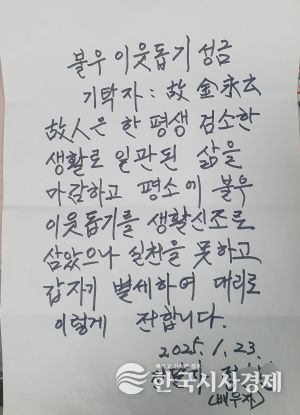 불우 이웃돕기 성금
기탁자 : 故 金永玄
故人은 한 평생 검소한
생활로 일관된 삶을
마감하고 평소에 불우
이웃돕기를 생활신조로
삼았으나 실천을 못하고
갑자기 별세하여 대리로
이렇게 전합니다.
2025. 1. 23.
한국시사경제
(배우자)